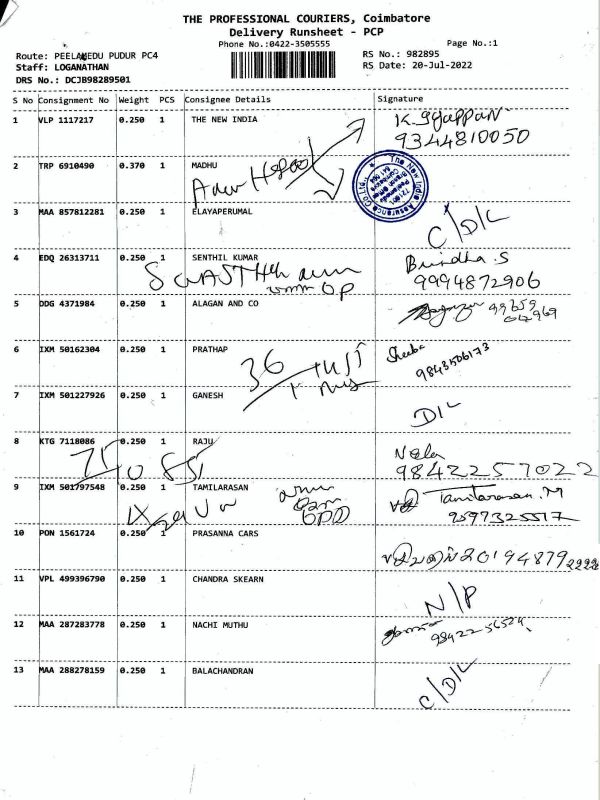 THE PROFESSIONAL COURIERS, Coimbatore
Delivery Runsheet - PCP
Phone No.:0422-3505555
Page No.:1
Route: PEELAMEDU PUDUR PC4
RS No.: 982895
Staff: LOGANATHAN
RS Date: 20-Jul-2022
DRS No.: DCJB98289501
S No Consignment No Weight PCS Consignee Details Signature
1 VLP 1117217 0.250 1 THE NEW INDIA
9344810050
2 TRP 6910490 0.370 1 MADHU
The New India Assurance Co
3 MAA 857812281 0.250 1 ELAYAPERUMAL C/D/L
4 EDQ 26313711 0.250 1 SENTHIL KUMAR Brindha.S
9994872906
5 DDG 4371984 0.250 1 ALAGAN AND CO
6 IXM 50162304 0.250 1 PRATHAP Sheeba
9843506173
36
7 IXM 501227926 0.250 1 GANESH D/L
8 KTG 7118086 0.250 1 RAJU
9842257022
9 IXM 501797548 0.250 1 TAMILARASAN Tamilarasan.M
10 PON 1561724 0.250 1 PRASANNA CARS
11 VPL 499396790 0.250 1 CHANDRA SKEARN N/P
12 MAA 287283778 0.250 1 NACHI MUTHU
13 MAA 288278159 0.250 1 BALACHANDRAN C/D/L